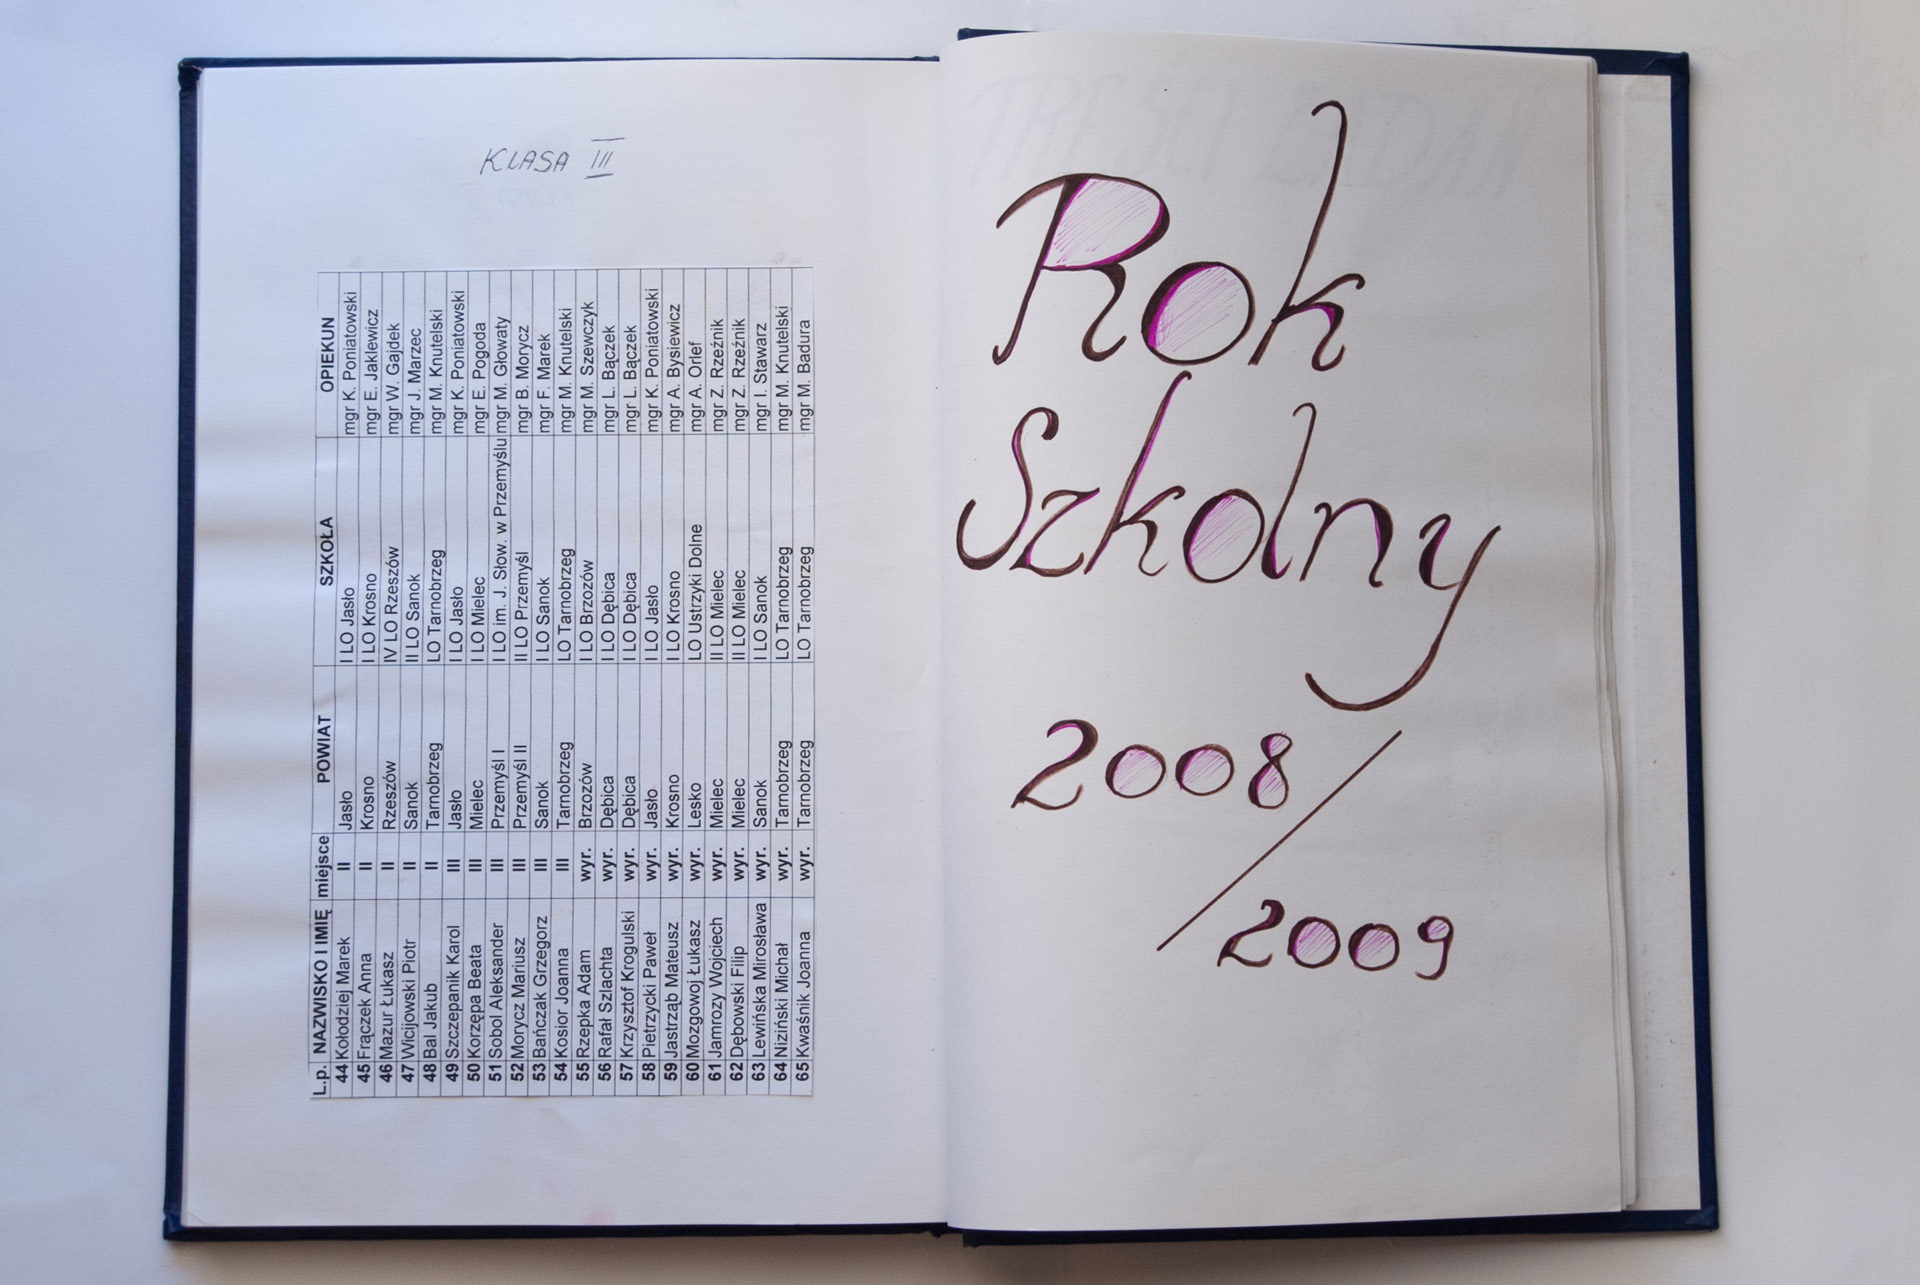 KLASA III
L.p. NAZWISKO I IMIĘ miejsce POWIAT SZKOŁA OPIEKUN
44 Kołodziej Marek II Jasło I LO Jasło mgr K. Poniatowski
45 Frączek Anna II Krosno I LO Krosno mgr E. Jaklewicz
46 Mazur Łukasz II Rzeszów IV LO Rzeszów mgr W. Gajdek
47 Wicijowski Piotr II Sanok II LO Sanok mgr J. Marzec
48 Bal Jakub II Tarnobrzeg LO Tarnobrzeg mgr M. Knutelski
49 Szczepanik Karol III Jasło I LO Jasło mgr K. Poniatowski
50 Korzępa Beata III Mielec I LO Mielec mgr E. Pogoda
51 Sobol Aleksander III Przemyśl I I LO im. J. Słow. w Przemyślu mgr M. Głowaty
52 Morycz Mariusz III Przemyśl II II LO Przemyśl mgr B. Morycz
53 Bańczak Grzegorz III Sanok I LO Sanok mgr F. Marek
54 Kosior Joanna III Tarnobrzeg LO Tarnobrzeg mgr M. Knutelski
55 Rzepka Adam wyr. Brzozów I LO Brzozów mgr M. Szewczyk
56 Rafał Szlachta wyr. Dębica I LO Dębica mgr L. Bączek
57 Krzysztof Krogulski wyr. Dębica I LO Dębica mgr L. Bączek
58 Pietrzycki Paweł wyr. Jasło I LO Jasło mgr K. Poniatowski
59 Jastrząb Mateusz wyr. Krosno I LO Krosno mgr A. Bysiewicz
60 Mozgowoj Łukasz wyr. Lesko LO Ustrzyki Dolne mgr A. Orlef
61 Jamrozy Wojciech wyr. Mielec II LO Mielec mgr Z. Rzeźnik
62 Dębowski Filip wyr. Mielec II LO Mielec mgr Z. Rzeźnik
63 Lewińska Mirosława wyr. Sanok I LO Sanok mgr I. Stawarz
64 Niziński Michał wyr. Tarnobrzeg LO Tarnobrzeg mgr M. Knutelski
65 Kwaśnik Joanna wyr. Tarnobrzeg LO Tarnobrzeg mgr M. Badura
Rok
Szkolny
2008/
2009